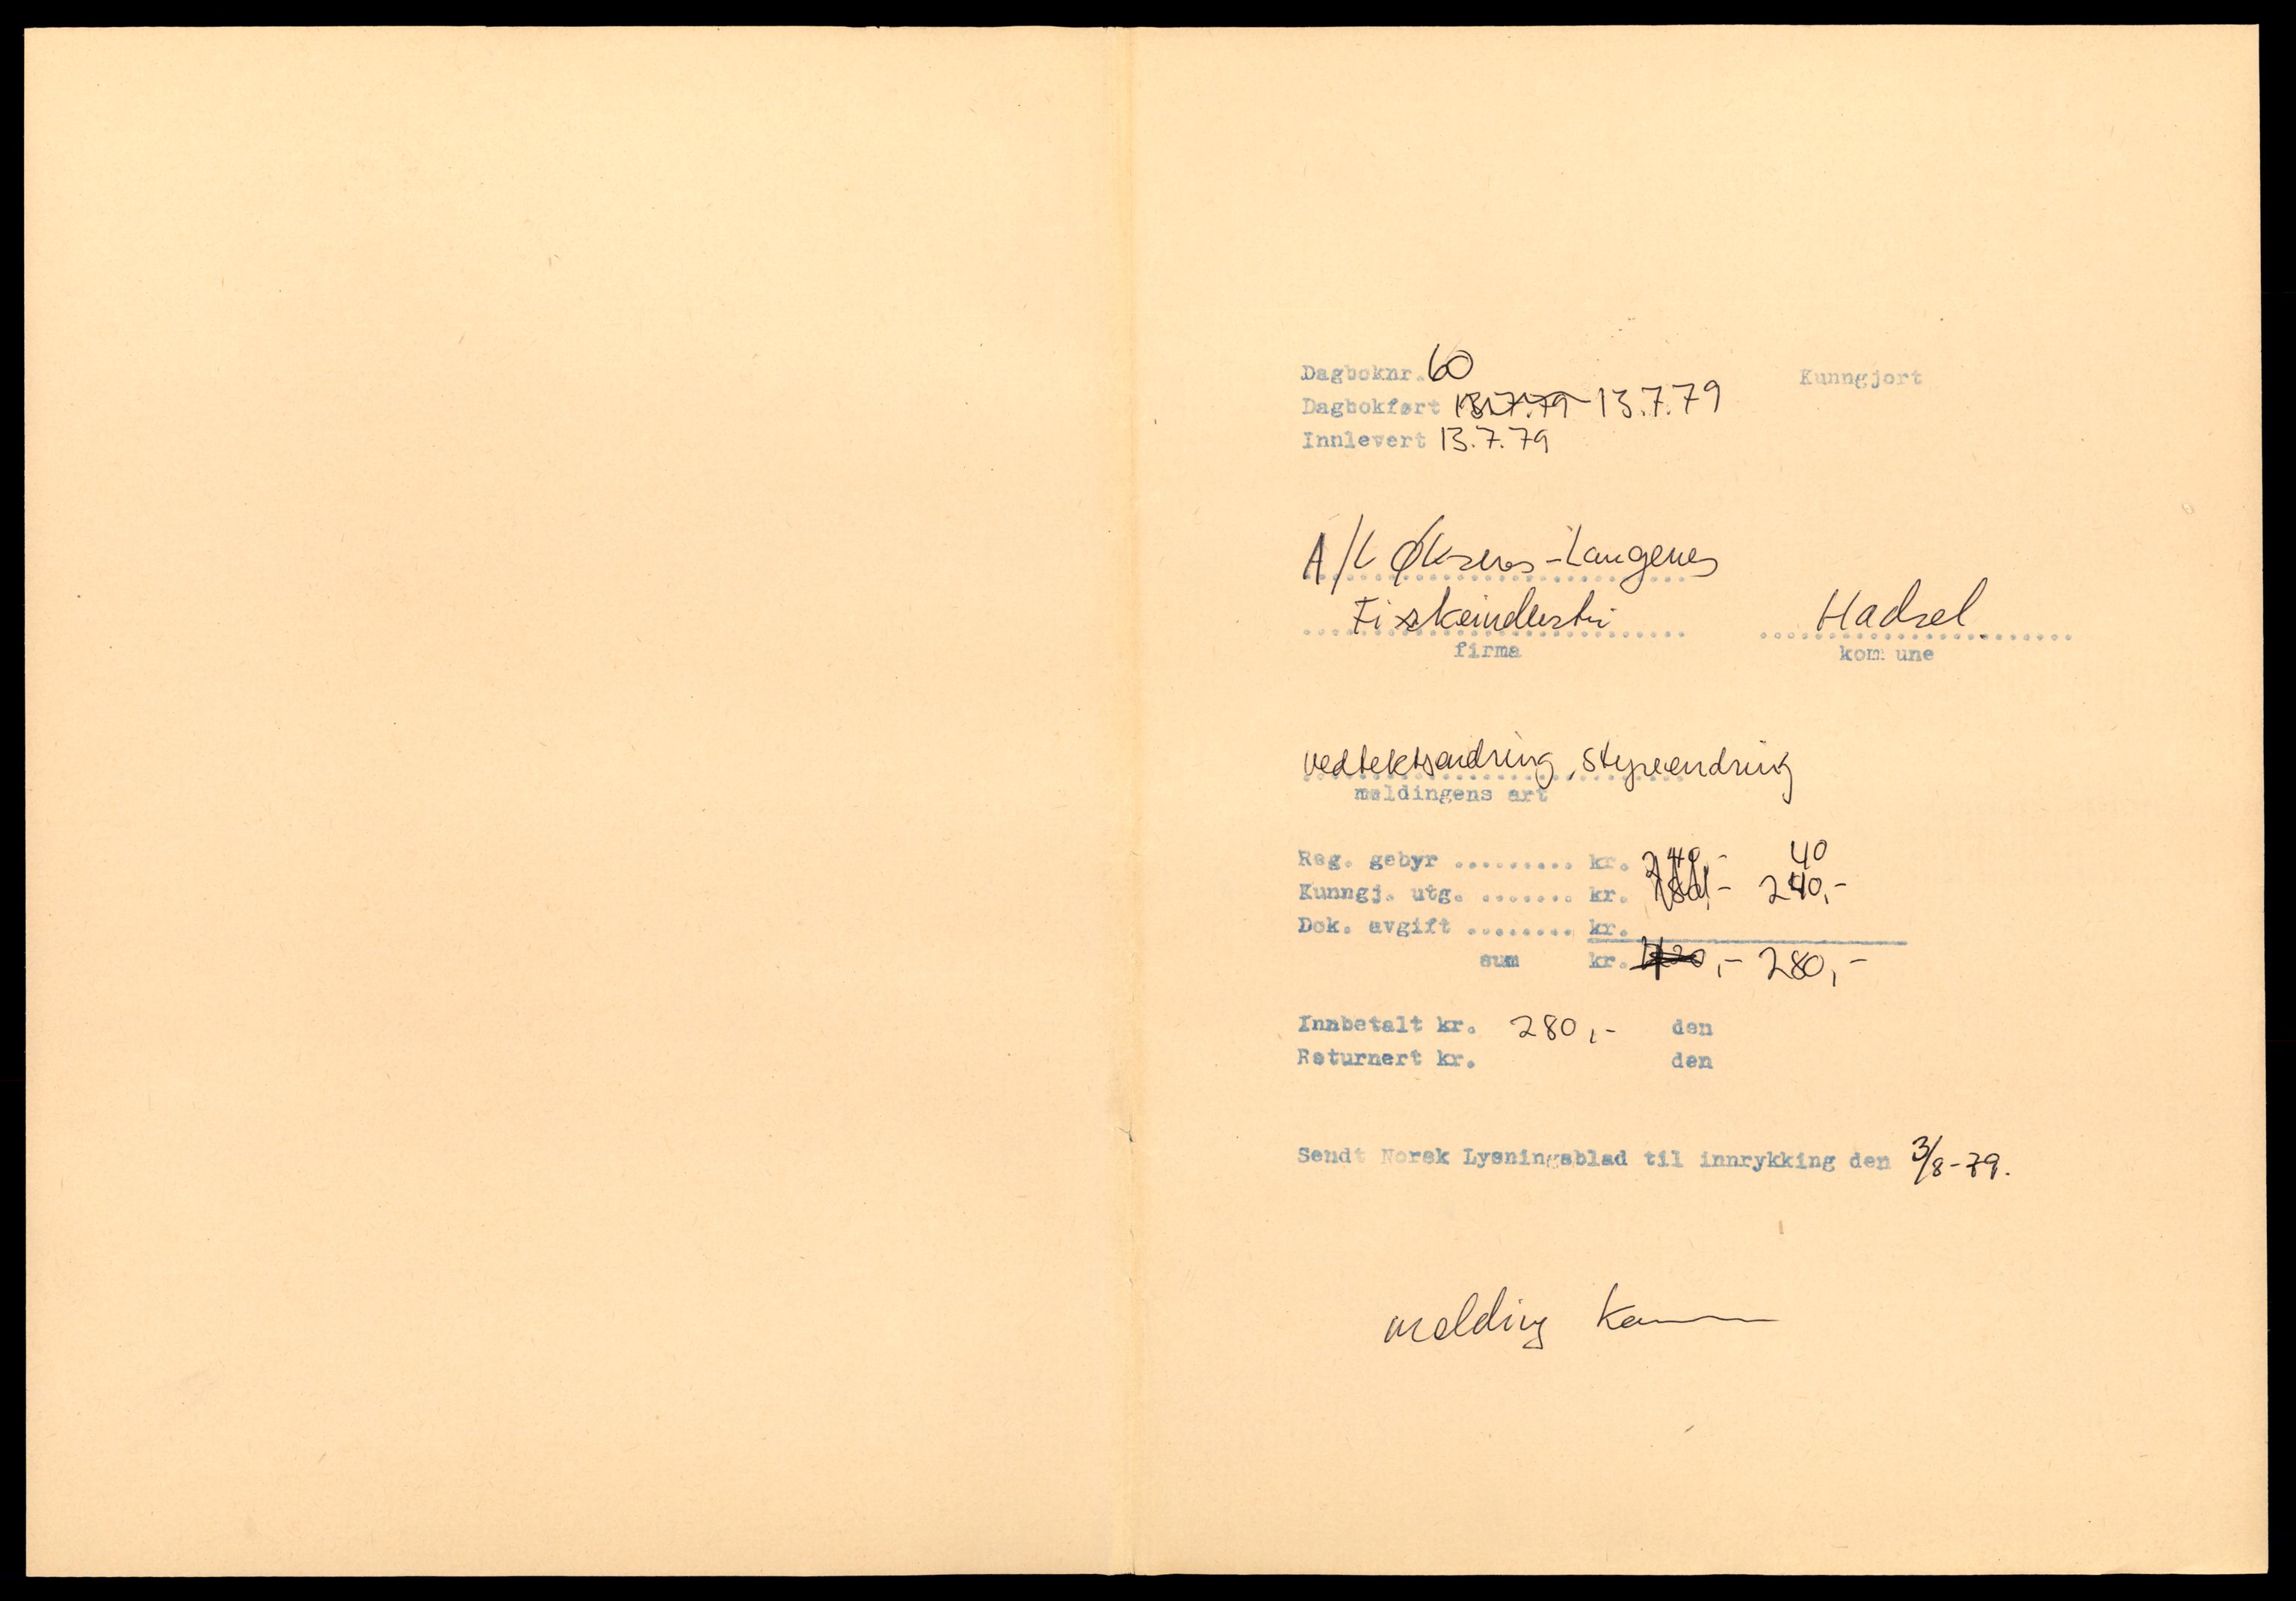 Dagboknr. 60
Kunngjort
Dagbokført 13.7.79 13.7.79
Innlevert 13.7.79
A/L Øksnes-Langenes
Fiskeindustri
Hadsel
firma
kommune
vedtektsendring, styreendring
meldingens art
Reg. gebyr ......... kr. 40,- 40
Kunngj. utg. ....... kr. 240,-
Dok. avgift ........ kr.
sum kr. 280,-
Innbetalt kr. 280,- den
Returnert kr. den
Sendt Norsk Lysningsblad til innrykking den 3/8-79.
melding